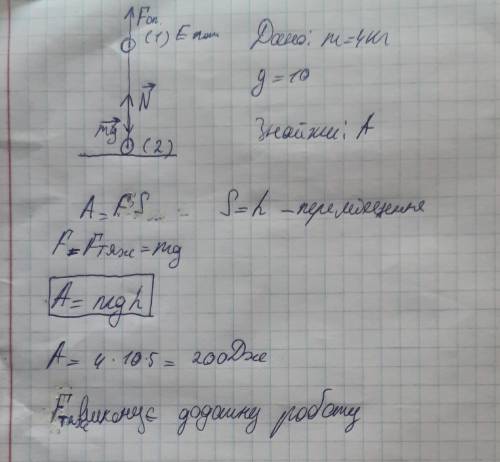 Fоп.
(1) E пот
Дано: m=4кг
g=10
N
mg
(2)
Знайти: A
A=F·S
S=h – переміщення
F=Fтяж=mg
A=mgh
A= 4·10·5= 200Дж
Fтяж виконує додатну роботу